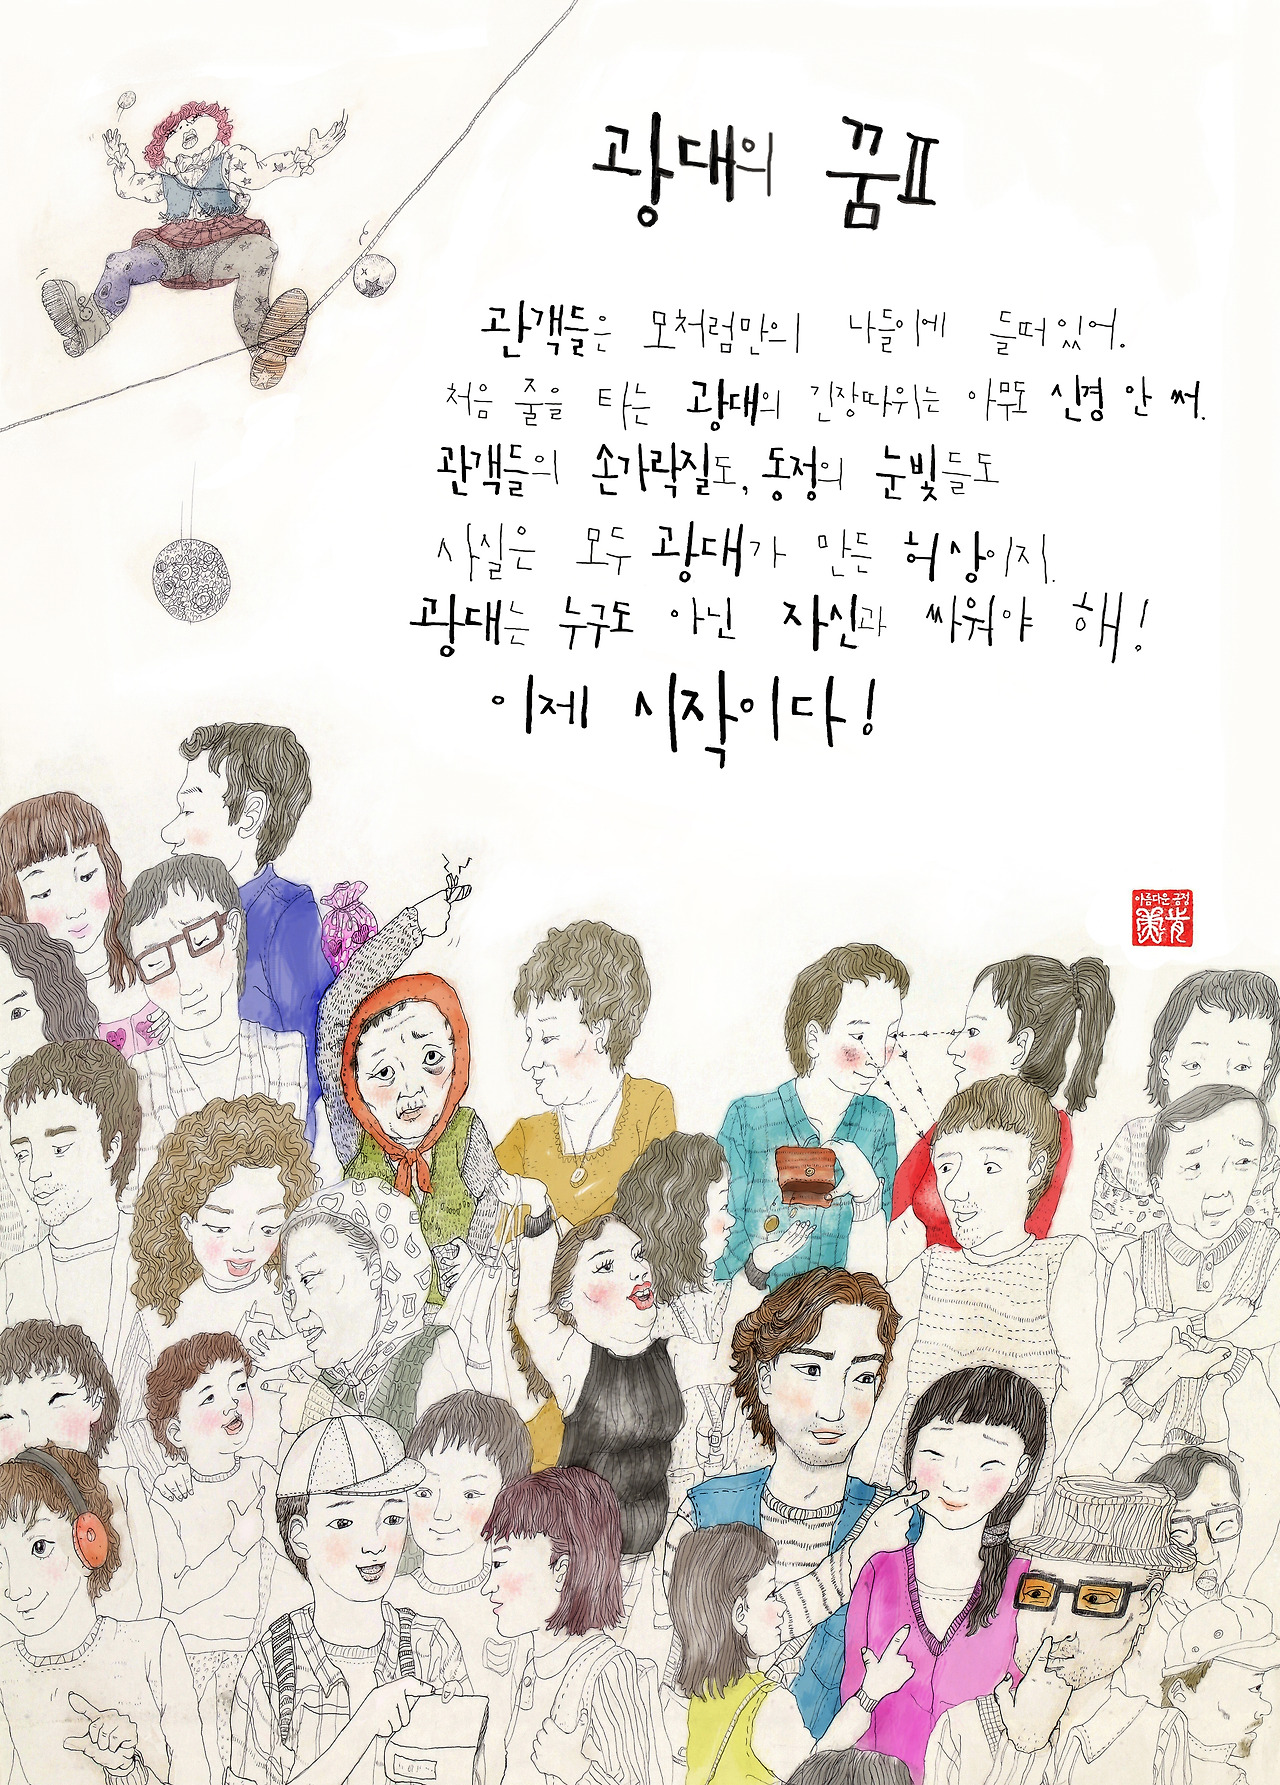 광대의 꿈Ⅱ
관객들은 모처럼만의 나들이에 들떠있어.
처음 줄을 타는 광대의 긴장따위는 아무도 신경 안 써.
관객들의 손가락질도, 동정의 눈빛들도
사실은 모두 광대가 만든 허상이지.
광대는 누구도 아닌 자신과 싸워야 해!
이제 시작이다!
아름다운 긍정
美肯